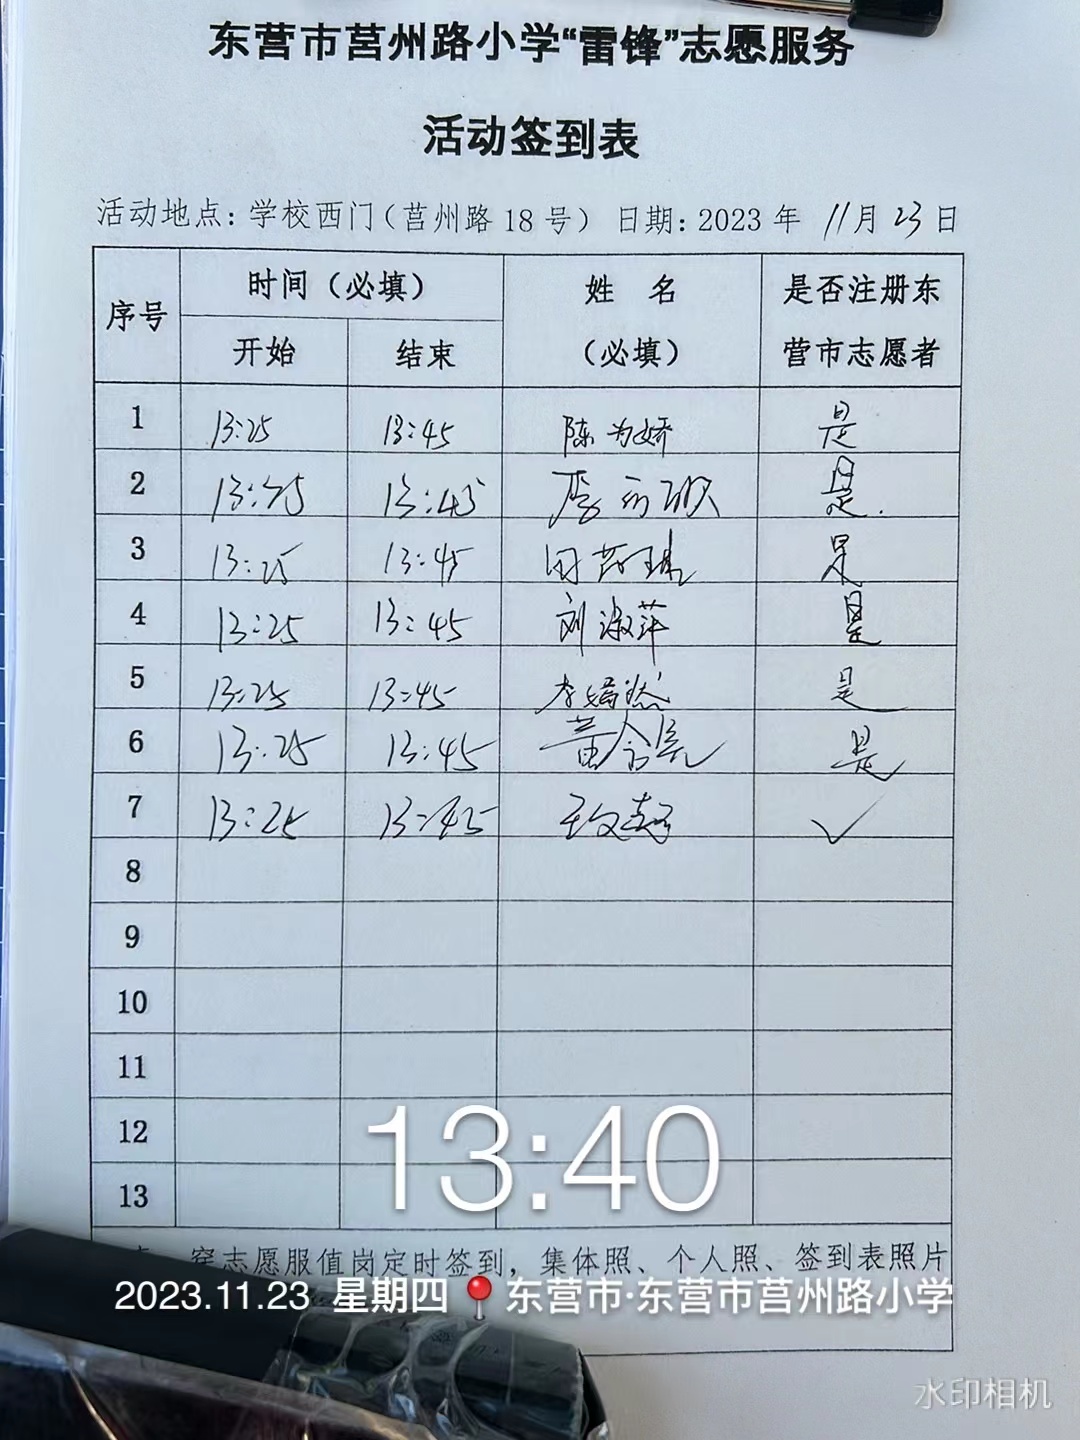 东营市莒州路小学“雷锋”志愿服务
活动签到表
活动地点：学校西门（莒州路18号） 日期：2023年 11月 23日
序号 时间（必填） 姓 名 是否注册东
开始 结束 （必填） 营市志愿者
1 13:25 13:45 陈为娇 是
2 13:25 13:45 是
3 13:25 13:45 是
4 13:25 13:45 刘淑萍 是
5 13:25 13:45 李嫣然 是
6 13:25 13:45 是
7 13:25 13:45 ✓
8
9
10
11
12
13
13:40
穿志愿服值岗定时签到，集体照、个人照、签到表照片
2023.11.23 星期四 东营市·东营市莒州路小学
水印相机